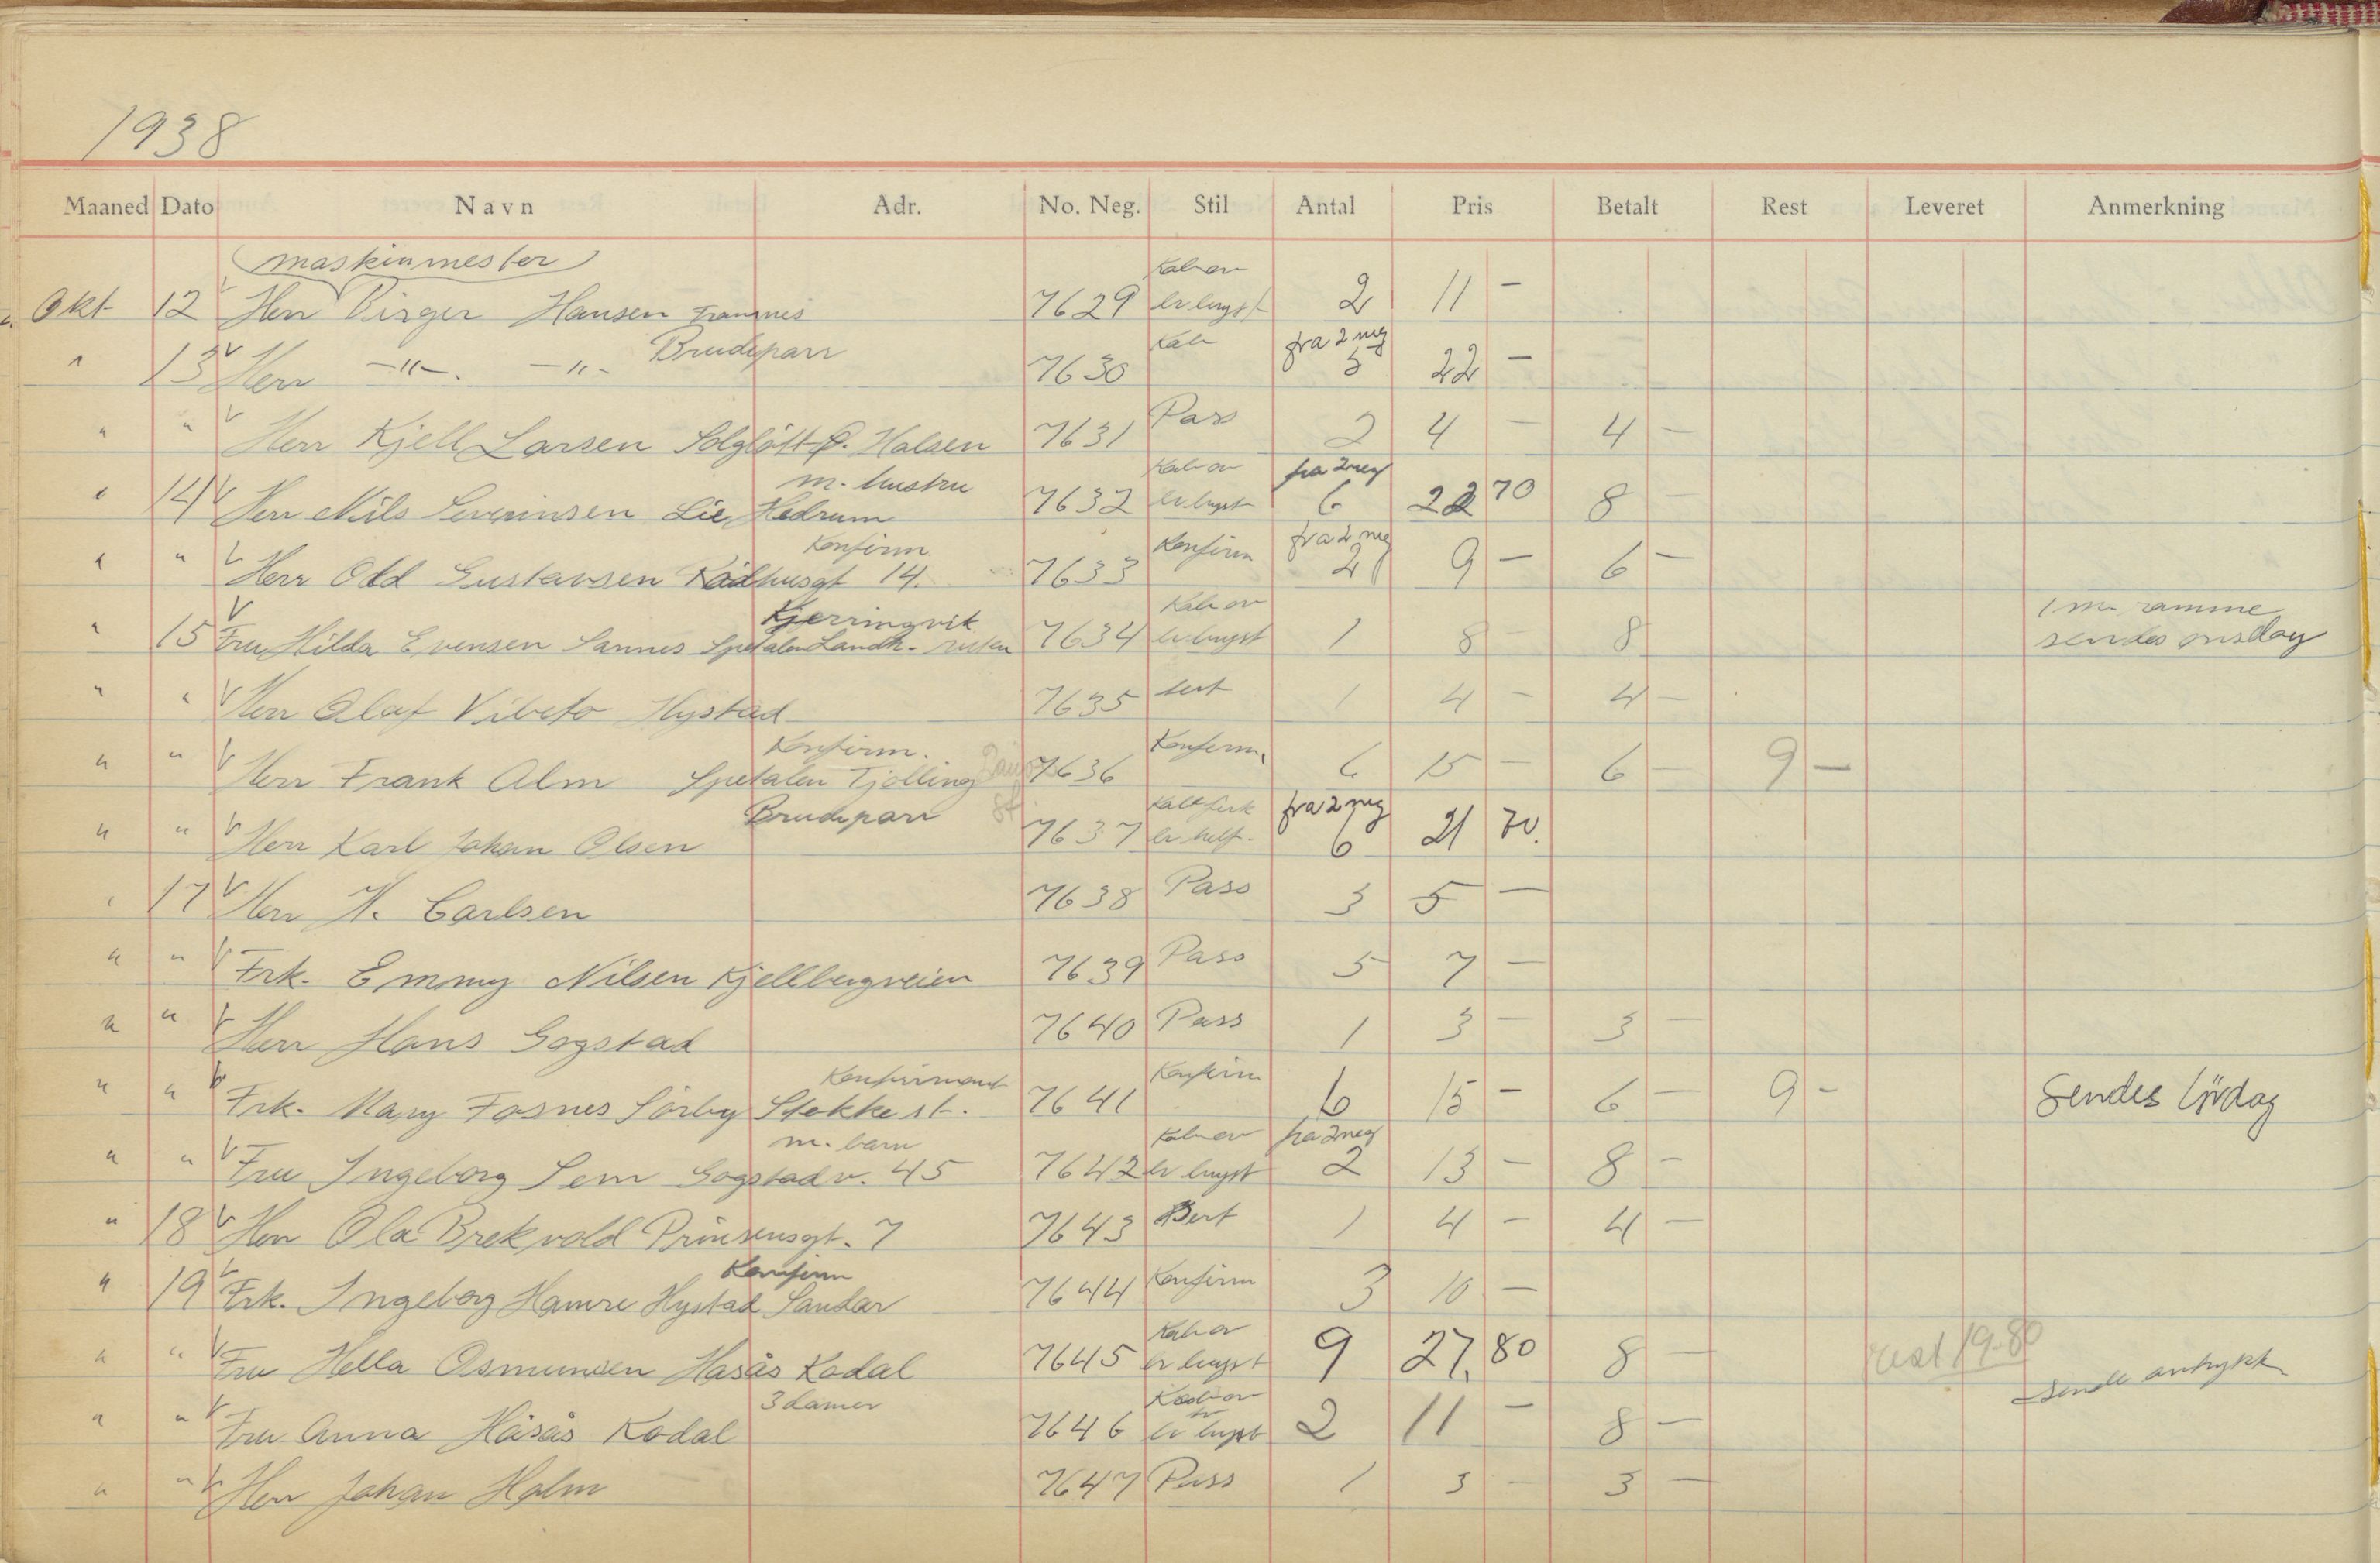 1938
Maaned Dato Navn Adr. No. Neg. Stil Antal Pris Betalt Rest Leveret Anmerkning
maskinmester Kab or
Okt 12 Herr Birger Hansen Framnes 7629 br bryst 2 11 -
Brudepar Kab fra 2 neg
" 13 Herr -"- -"- 7630 3 22 -
" " Herr Kjell Larsen Solgløtt Ø. Halsen 7631 Pass 2 4 - 4 -
m. hustru Kab or fra 2 neg
" 14 Herr Nils Severinsen Lie Hedrum 7632 br bryst 6 22 70 8 -
Konfirm Konfirm fra 2 neg
" " Herr Odd Gustavsen Rådhusgt 14. 7633 2 9 - 6 -
Kjerringvik Kab or 1 m ramme
" 15 Fru Hilda Evensen Sannes Spetalen Landh. ruten 7634 br bryst 1 8 - 8 sendes onsdag
" " Herr Olaf Vibeto Hystad 7635 1 4 - 4 -
Konfirm. Konfirm.
" " Herr Frank Alm Spetalen Tjølling 7636 6 15 - 6 - 9 -
Brudepar fra 2 neg
" " Herr Karl Johan Olsen 7637 br helf. 6 21 70.
" 17 Herr H. Carlsen 7638 Pass 3 5 -
" " Frk. Emmy Nilsen Kjellbergveien 7639 Pass 5 7 -
" " Herr Hans Gogstad 7640 Pass 1 3 - 3 -
Konfirmant Konfirm
" " Frk. Mary Fosnes Sörby Stokke st. 7641 6 15 - 6 - 9 - Sendes lördag
m. barn Kab or fra 2 neg
" " Fru Ingeborg Sem Gogstadv. 45 7642 br bryst 2 13 - 8 -
" 18 Herr Ola Brekvold Prinsensgt. 7 7643 1 4 - 4 -
Konfirm
" 19 Frk. Ingeborg Hamre Hystad Sandar 7644 Konfirm 3 10 -
Kab or
" " Fru Hella Asmundsen Hasås Kodal 7645 br bryst 9 27,80 8 - rest 19.80
3 damer Kab or sende avtrykk
" " Fru Anna Håsås Kodal 7646 br bryst 2 11 - 8 -
" " Herr Johan Holm 7647 Pass 1 3 - 3 -